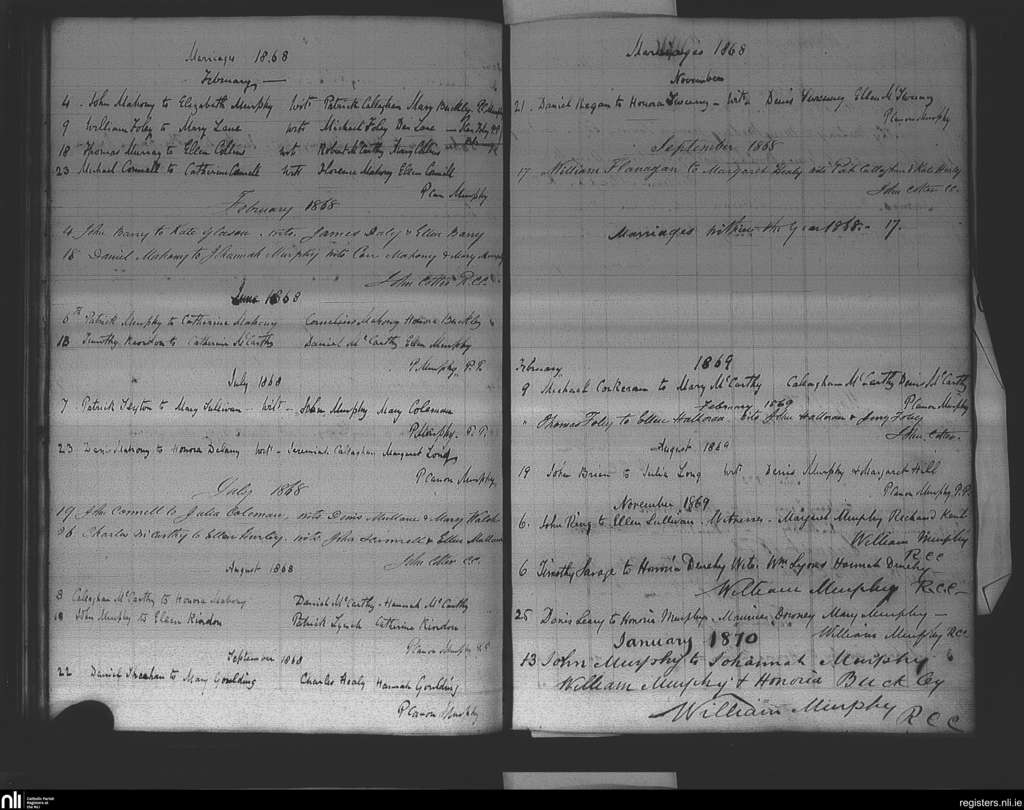 Marriages 1868
February
4 . John Mahony to Elizabeth Murphy Wits Patrick Callaghan Mary Buckley
9 William Foley to Mary Lane wits Michael Foley Dan Lane
18 Thomas Murray to Ellen Collins wits Robert McCarthy Mary Collins
23 Michael Connell to Catherine Connell wits Florence Mahony Ellen Connell
P Canon Murphy
February 1868
4 John Barry to Kate Gleason . wits. James Daly & Ellen Barry
18 Daniel Mahony to Johannah Murphy wits Con Mahony & Mary Murphy
John Cotter R.C.C.
June 1868
5th Patrick Murphy to Catherine Mahony Cornelius Mahony Honora Buckley
13 Timothy Riordon to Catherine McCarthy Daniel McCarthy Ellen Murphy
P. Murphy. P. P.
July 1868
7 Patrick to Mary Sullivan - Wits - John Murphy Mary Coleman
P. Murphy. P. P.
23 Denis Mahony to Honora Delany Wits - Jeremiah Callaghan Margaret Long
P Canon Murphy
July 1868
19 John Connell to Julia Coleman, wits Denis Mullane & Mary Walsh
26 Charles McCarthy to Ellen Hurley. wits John & Ellen
John Cotter CC.
August 1868
8 Callaghan McCarthy to Honora Mahony Daniel McCarthy - Hannah McCarthy
18 John Murphy to Eileen Riordon Patrick Lynch Catherine Riordon
P Canon Murphy P.P.
September 1868
22 Daniel Sheahan to Mary Goulding Charles Healy Hannah Goulding
P Canon Murphy
Marriages 1868
November
21. Daniel Regan to Honora Sweeney - Wits Denis Sweeney Ellen McSweeny
P Canon Murphy
September 1868
17 William Flanagan to Margaret Healy wits Pat Callaghan & Kate Healy
John Cotter CC.
Marriages within the Year 1868. - 17.
1869
February
9 Michael Corkeran to Mary McCarthy Callaghan McCarthy Denis McCarthy
P Canon Murphy
February 1869
" Thomas Foley to Ellen Halloran. wits John Halloran & Foley
John Cotter.
August 1869
19 John Brien to Julia Long Wits Denis Murphy & Margaret Hill
P Canon Murphy P.P.
November 1869
6. John King to Ellen Sullivan Witnesses. Margret Murphy Richard Kent
William Murphy
R C C
6 Timothy Savage to Honoria Denehy Wits. Wm Lyons Hannah Denehy
William Murphy R.C.C.
25 Denis Leary to Honoria Murphy. Maurice Downey Mary Murphy
William Murphy R.C.C.
January 1870
13 John Murphy to Johannah Murphy
William Murphy & Honoria Buckley
William Murphy R C C
nli
Catholic Parish
Registers at
the NLI
registers.nli.ie